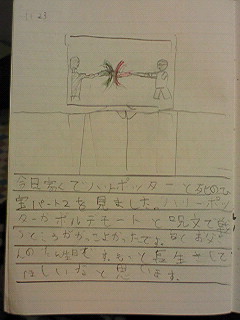 11 23
ハリーポッターと死の
宝パート2を見ました。ハリーポッ
ターがボルデモートと呪文で
うところがかっこよかったです。あと
んの 生日も もっと 生きして
ほしいなと思います。